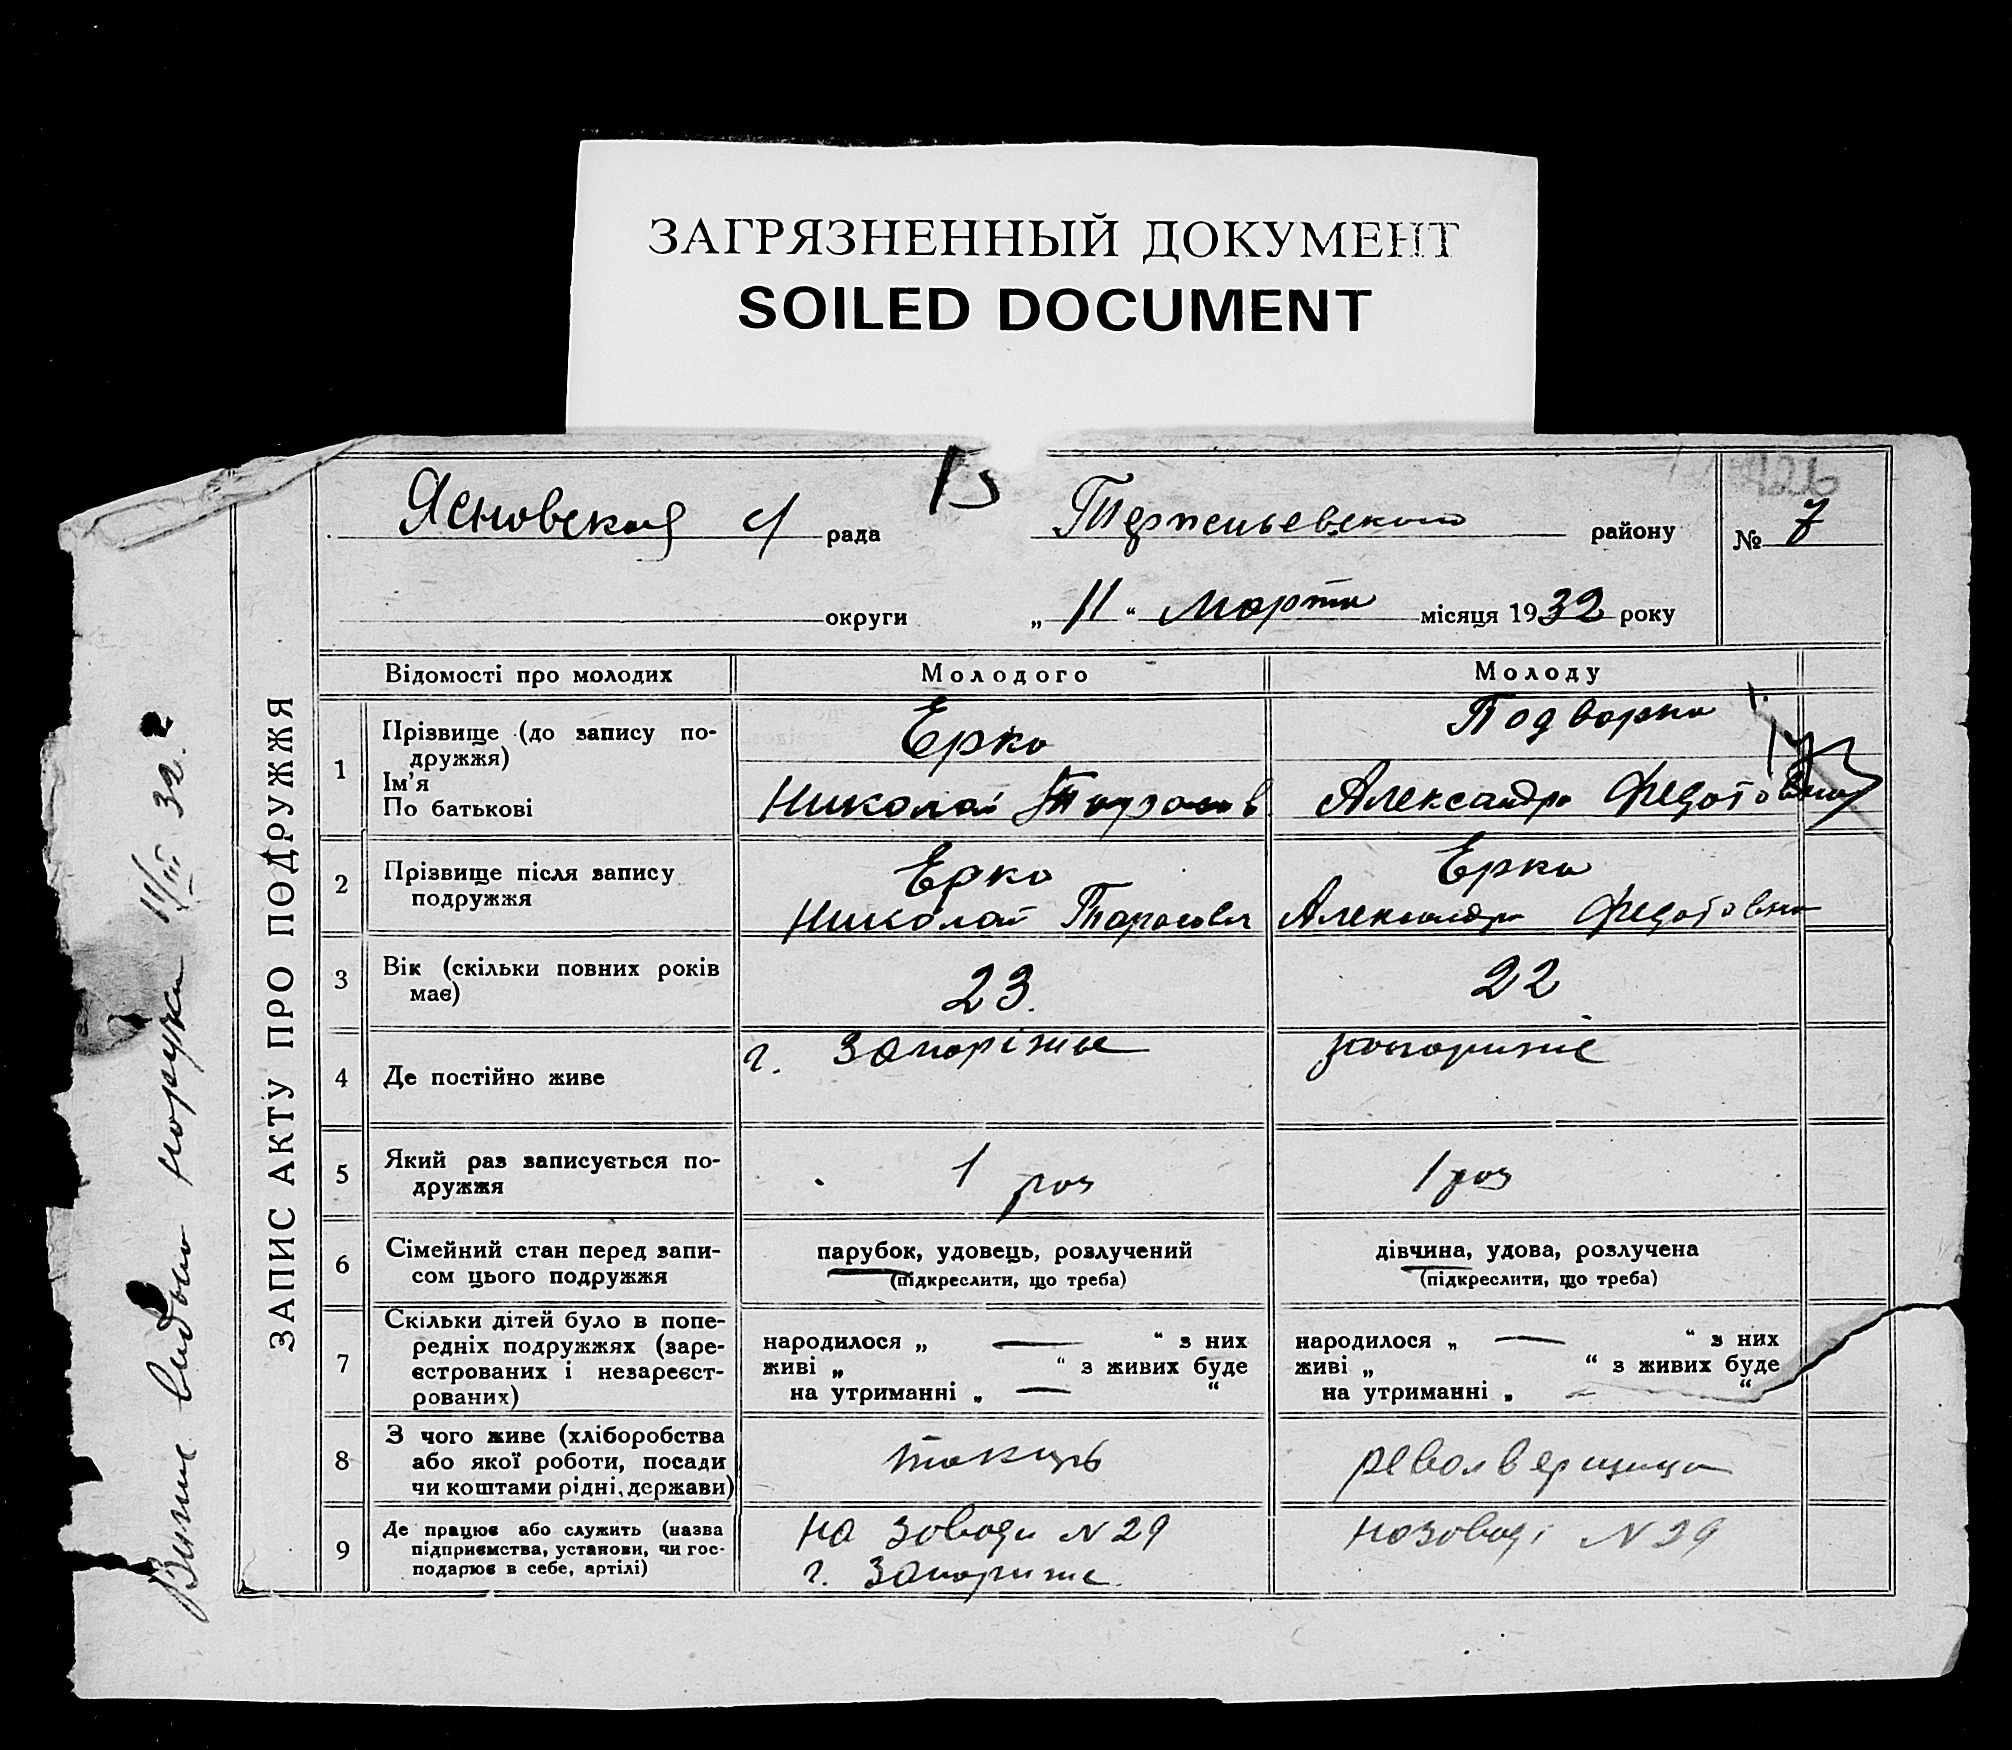 ЗАГРЯЗНЕННЫЙ ДОКУМЕНТ
SOILED DOCUMENT
Ясновская с/ рада району № 7
округи „ 11 “ Марта місяця 1932 року
ЗАПИС АКТУ ПРО ПОДРУЖЖЯ
Відомості про молодих Молодого Молоду
1 Прізвище (до запису по-
дружжя)
Ім'я
По батькові
Ерко
Николай
Подворко
Александра Федотовна
2 Прізвище після запису
подружжя
Ерко
Николай Тарасов
Ерко
Александра Федотовна
3 Вік (скільки повних років
має)
23.
22
4 Де постійно живе
г. Запоріжье
Запорижіе
5 Який раз записується по-
дружжя
1 раз
1 раз
6 Сімейний стан перед запи-
сом цього подружжя
парубок, удовець, розлучений
(підкреслити, що треба)
дівчина, удова, розлучена
(підкреслити, що треба)
7 Скільки дітей було в попе-
редніх подружжях (заре-
єстрованих і незареєст-
рованих)
народилося „ — “ з них
живі „ “ з живих буде
на утриманні „ — “
народилося „ — “ з них
живі „ “ з живих буде
на утриманні „ — “
8 З чого живе (хліборобства
або якої роботи, посади
чи коштами рідні, держави)
токарь
револверщица
9 Де працює або служить (назва
підприємства, установи, чи гос-
подарює в себе, артілі)
на заводи N 29
г. Запорижє.
на заводі N 29
11/III 32.